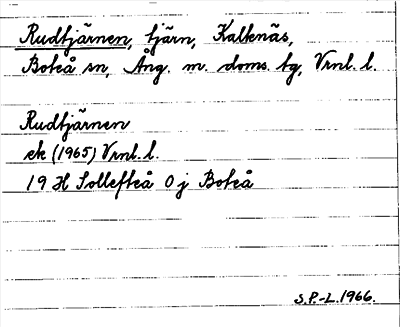 Rudtjärnen, tjärn, Kalknäs,
Boteå sn, Ång. m. doms. tg, Vrnl. l.
Rudtjärnen
ek (1965) Vrnl. l.
19 H Sollefteå 0 j Boteå
S.P-L. 1966.